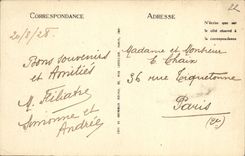 22
CORRESPONDANCE
ADRESSE
N'écrire que sur
le côté réservé à
la correspondance
20/8/28.
Bons souvenirs
et Amitiés
M. Filiatre
Simonne et
Andrée
Madame et Monsieur
E Chain
36 rue Tiquetonne
Paris
(2e)